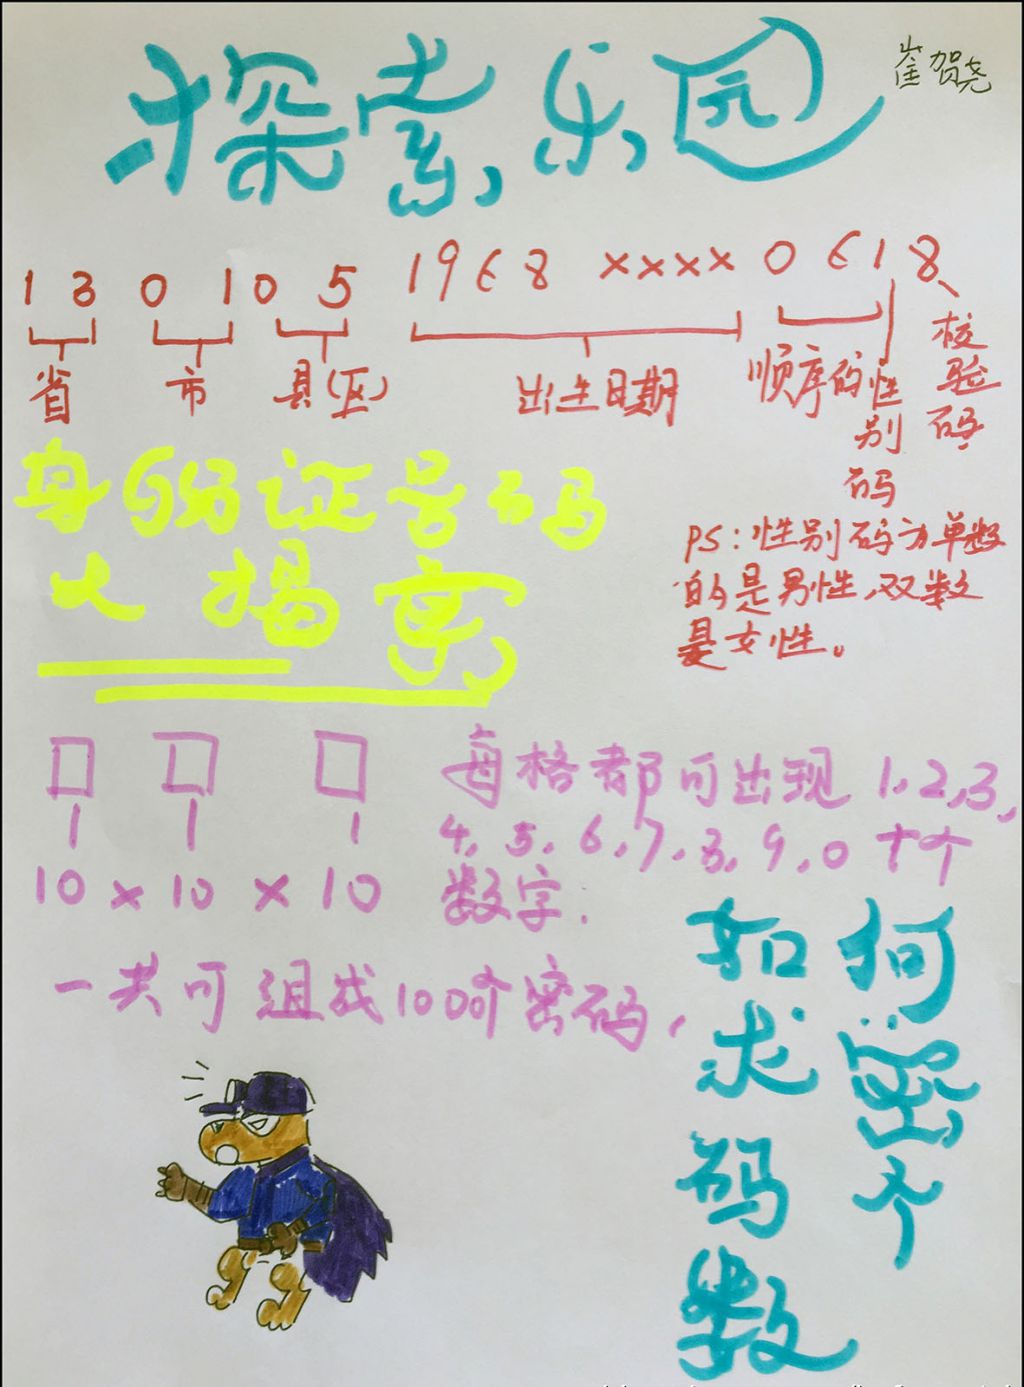 探索乐园
崔贺尧
13 01 05 1968 ×××× 0618
省 市 县(区) 出生日期 顺序的 性别码 校验码
身份证号码
大揭密
PS:性别码为单数
的是男性,双数
是女性。
□ □ □
10×10×10
每格都可出现1,2,3,
4,5,6,7,8,9,0十个
数字.
一共可组成1000个密码,
如何
求密
码个
数